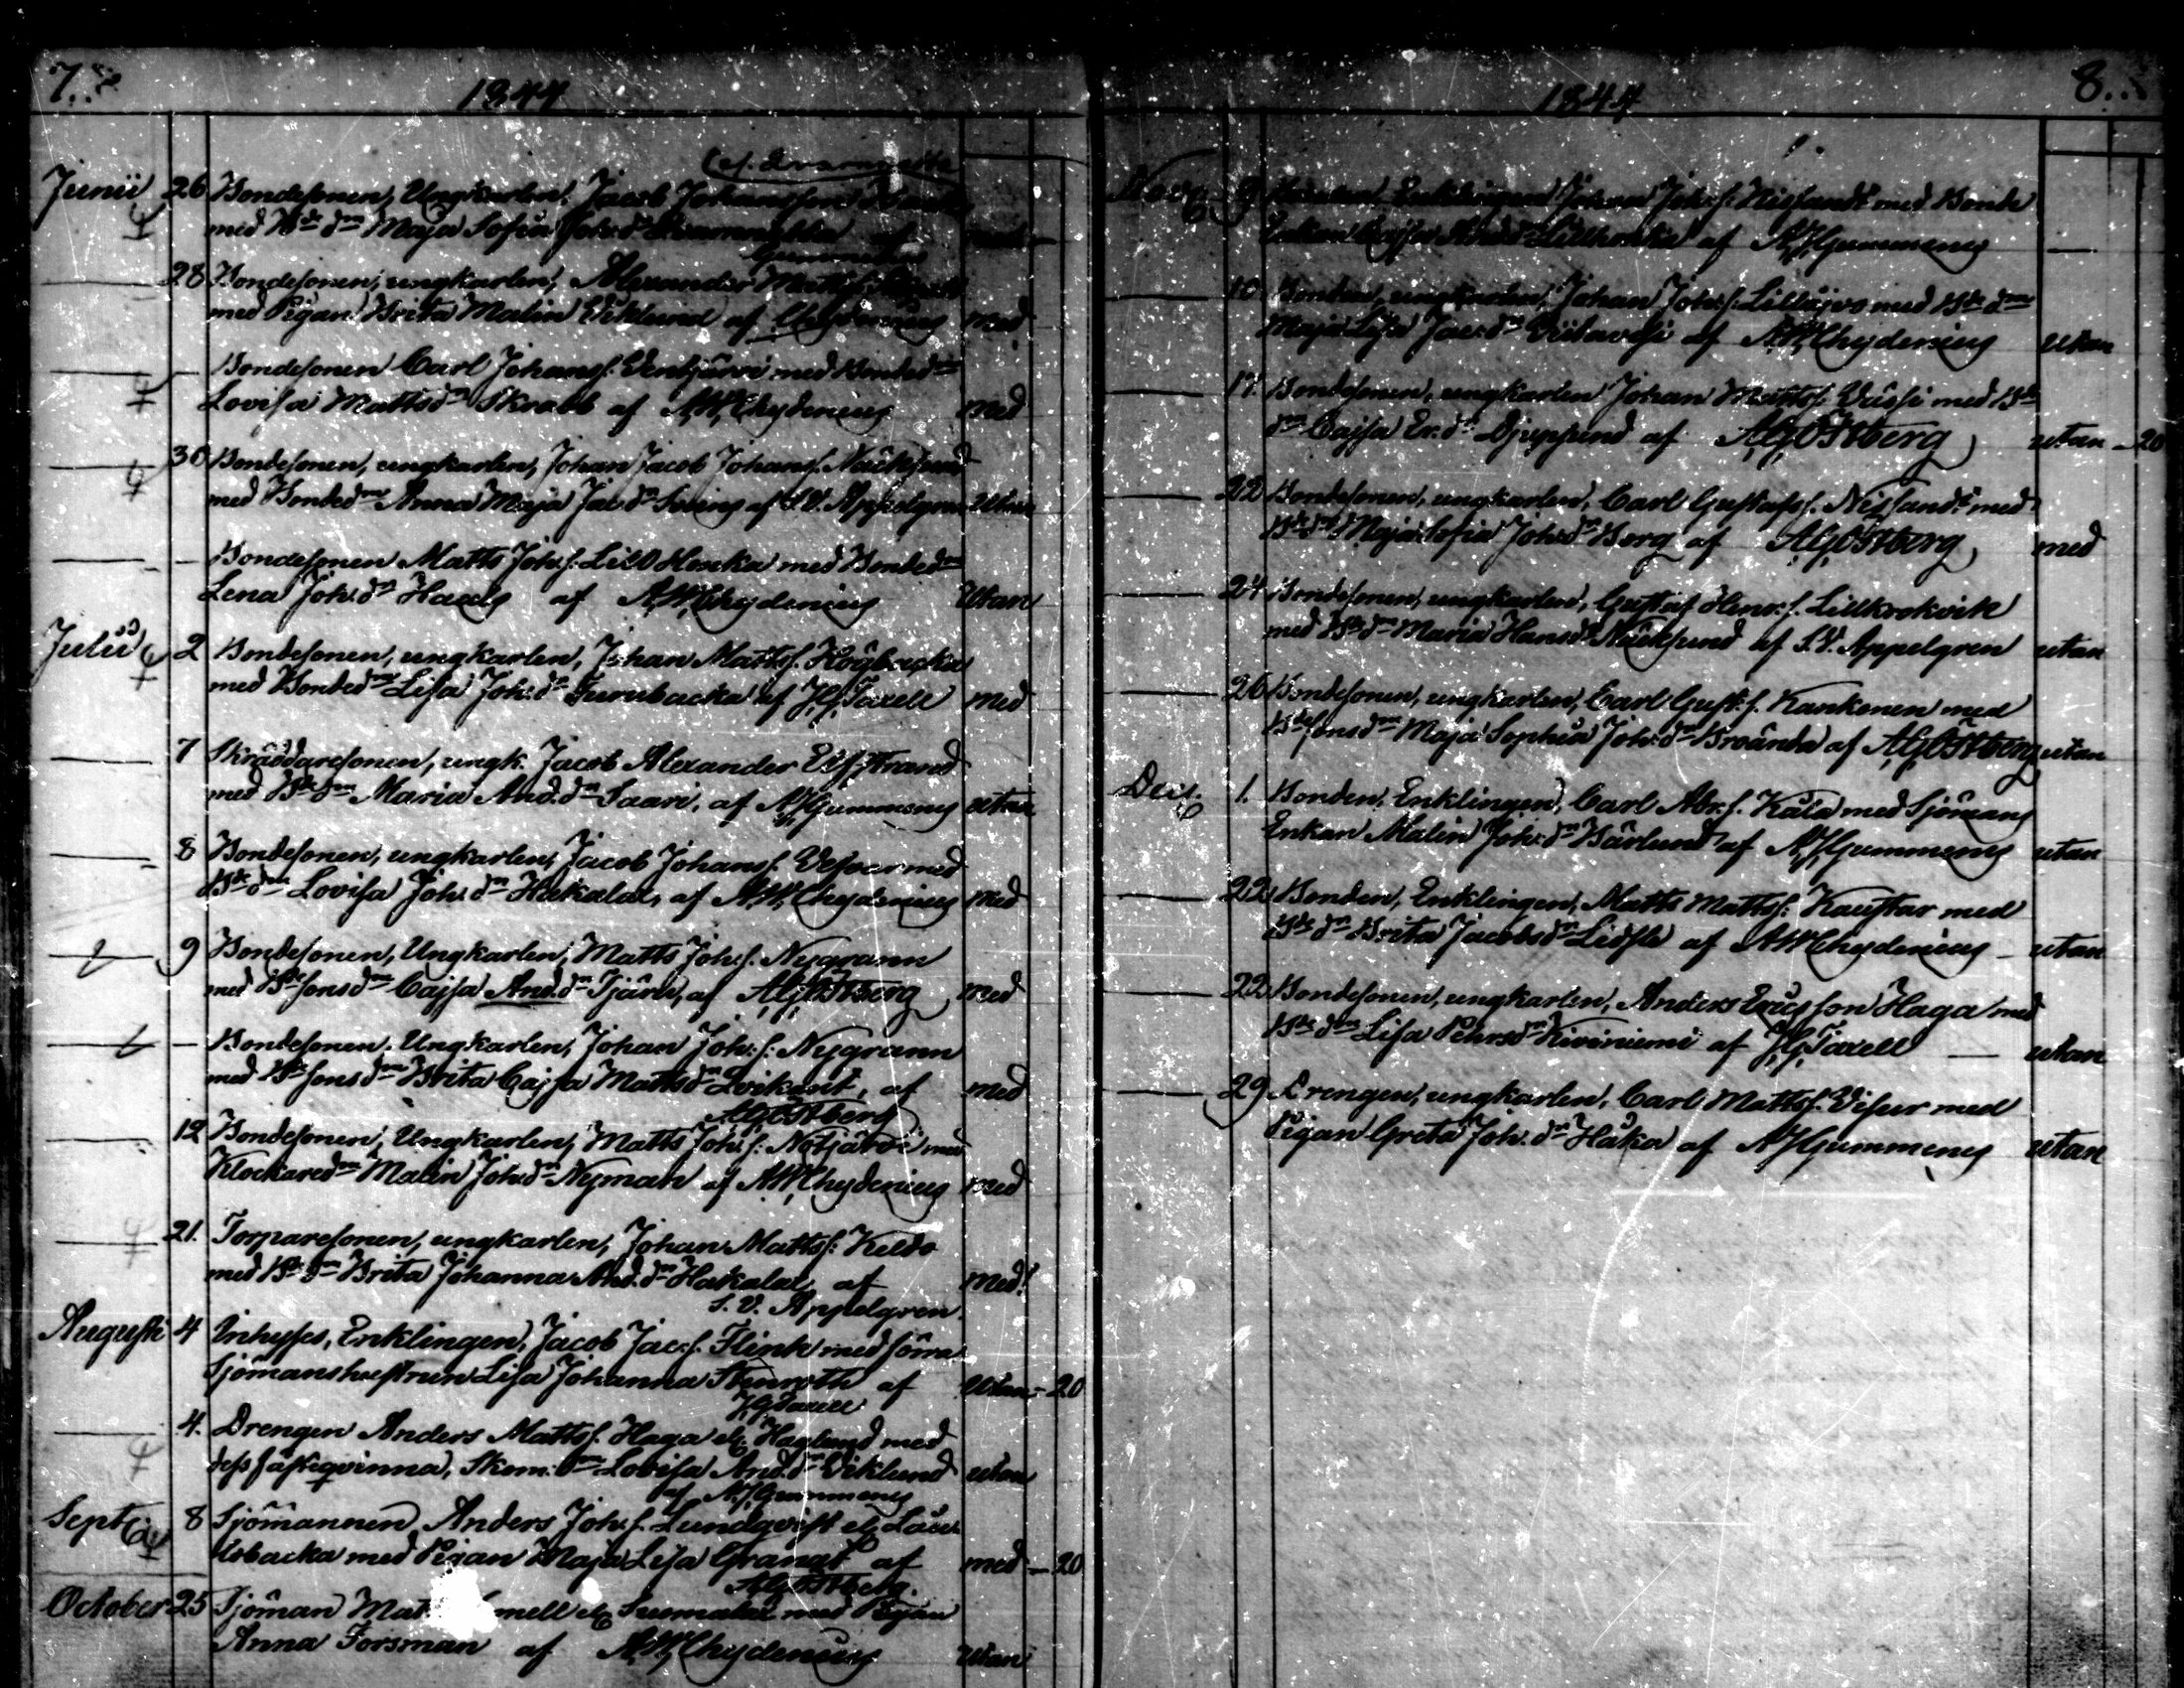 7.
1844
Junii 26 Bondesonen, Ungkarlen, Jacob Johansson
med Bde dn Maja Sofia Joh: dr af med
28 Bondesonen, ungkarlen, Alexander Matts
med Pigan Brita Malin Viklund af Chydenius med
Bondesonen Carl Johans s. Ventjärvi med Bonded:n
Lovisa Mattsdr Skrabb af A.W. Chydenius med
30 Bondesonen, ungkarlen, Johan Jacob Johans s. Näcksund
med Bondedn Anna Maja Jac. dr af S.V. Appelgren utan
Bondesonen Matts Joh. s. Lill Honka med Bondedn
Lena Joh: dr Haals af A.W. Chydenius utan
Julii 2 Bondesonen, ungkarlen, Johan Matts s. Högbacka
med Bondedn Lisa Joh: dr Furubacka af J.G. Taxell med
7 Skräddaresonen, ungk. Jacob Alexander Elfstrand
med Bde dn Maria And. dr Saari, af A.J. Gummerus utan
8 Bondesonen, ungkarlen, Jacob Johans s. med
Bde dn Lovisa Joh: dr Hakala, af A.W. Chydenius med
9 Bondesonen, Ungkarlen, Matts Joh: s. Nygrann
med Bdesonsdn Cajsa And. dr Tjäru, af A.G. Östberg med
Bondesonen, Ungkarlen, Johan Joh: s: Nygrann
med Bdesonsdn Brita Cajsa Matts dr af med
A.G. Östberg
12 Bondesonen, Ungkarlen, Matts Joh: s: Notjärvi med
Klockaredn Malin Joh: dr Nyman af A.W. Chydenius med
21. Torparesonen, ungkarlen, Johan Matts s: Keldo
med Bde dn Brita Johanna And. dr Hakala, af med
S.V. Appelgren
Augusti 4 Inhyses, Enklingen, Jacob Jac: s. Flink med förra
Sjömanshustrun Lisa Johanna Stenroth af utan - 20
J.G. Taxell
4. Drengen Anders Matts s. Haga el. Haglund med
dess fästeqvinna, Skom. dn Lovisa And. dr Viklund utan
af A.J. Gummerus
Sept 8 Sjömannen Anders Joh: s. Lundqvist el. Lau-
backa med Pigan Maja Lisa Granat af med - 20
A.G. Östberg.
October 25 Sjöman el. med Pigan
Anna Forsman af A.W. Chydenius utan
8.
1844
Nov 9 Enklingen Johan Joh: s. Nissandt med Bonde
Enkan Cajsa And. dr Lillhonka af A.J. Gummerus
10. Bonden, ungkarlen, Johan Joh: s. Lillsjvo med Bde dn
Maja Lisa Jac: dr Viitavesi af A.W. Chydenius utan
17. Bondesonen, ungkarlen Johan Matts s. med Bde
dn Cajsa Er. dr Djupsund af A.G. Östberg utan - 20
22 Bondesonen, ungkarlen, Carl Gustafs s. Nissandt med
Bde dn Maja Sofia Joh: dr Borg af A.G. Östberg med
24 Bondesonen, ungkarlen, Gustaf Henr. s. Lillkrokvik
med Bde dn Maria Hans dr Näcksund af S.V. Appelgren utan
26 Bondesonen, ungkarlen, Carl Gust: s. Kankonen med
Bdesonsdn Maja Sophia Joh: dr Broända af A.G. Östberg utan
Dec. 1. Bonden, Enklingen, Carl Abr: s. Kåla med Sjömans
Enkan Malin Joh: dr Bärlund af A.J. Gummerus utan
22 Bonden, Enklingen, Matts Matts s: Kaustar med
Bde dn Brita Jacobs dr Lidsle af A.W. Chydenius utan
22 Bondesonen, ungkarlen, Anders Ericsson Haga med
Bde dn Lisa Pehrs dr Kiviniemi af J.G. Taxell utan
29 Drengen, ungkarlen, Carl Matts s. Visur med
Pigan Greta Joh: dr Håka af A.J. Gummerus utan